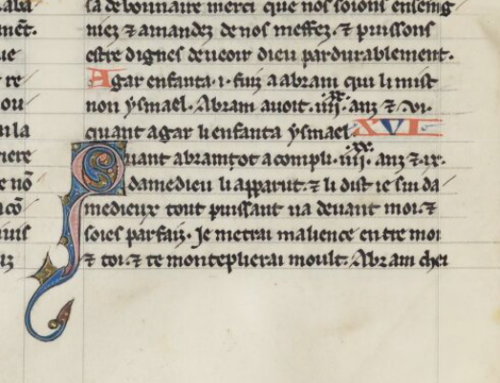 aba
sa debonnaire merci que nos soions enseing
niez & amandez de nos meffez. & puissons
estre dignes de veoir dieu pardurablement.
Agar enfanta .i. fuiz a abram qui li mist
non ysmael. Abram avoit .iiii.xx. anz & .vi.
quant agar li enfanta ysmael. XVI
Quant abram ot acompli .iiii.xx. anz & .ix.
damedieu li apparut. & li dist ie sui da
medieux tout puissant va devant moi. &
soies parfaiz. Je metrai malience entre moi
& toi. & te monteplierai moult. Abram chei